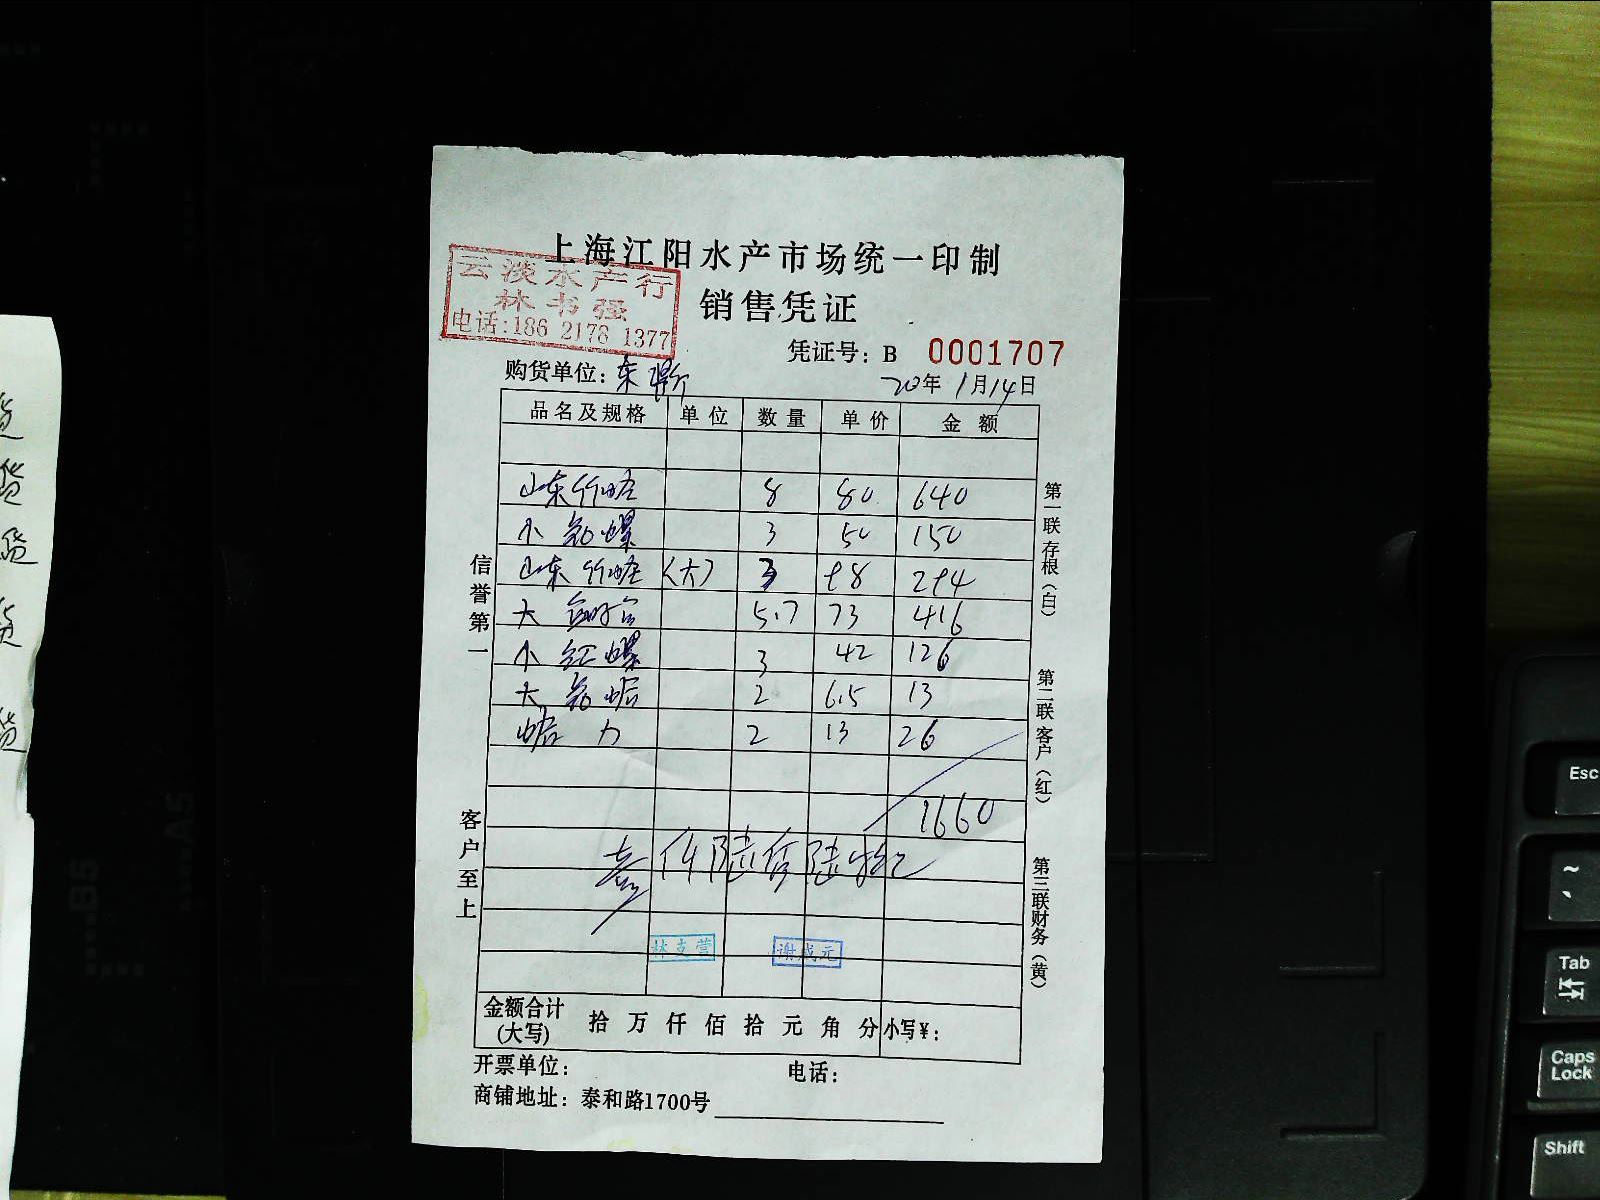 上海江阳水产市场统一印制
云淡水产行
林书强
电话:186 2178 1377
销售凭证
凭证号: B 0001707
购货单位: 东
20年1月14日
品名及规格 单位 数量 单价 金额
山东竹蛏 8 80 640
小 螺 3 50 150
山东竹蛏 (大) 3 98 294
大 5.7 73 416
小 红螺 3 42 126
大 2 6.5 13
2 13 26
1660
壹仟陆佰陆拾元
林支营
谢成元
金额合计
(大写)
拾 万 仟 佰 拾 元 角 分 小写¥:
开票单位: 电话:
商铺地址: 泰和路1700号
信誉第一
客户至上
第一联 存根(白)
第二联 客户(红)
第三联 财务(黄)
货
货
货
货
Esc
~
`
Tab
Caps
Lock
Shift
B5
A5